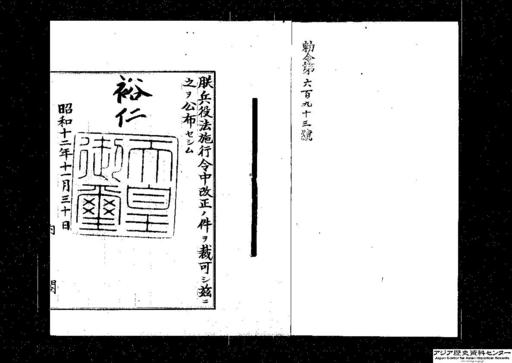 勅令第六百九十三號
朕兵役法施行令中改正ノ件ヲ裁可シ茲ニ
之ヲ公布セシム
裕仁
天皇
御璽
昭和十二年十一月三十日
内閣
アジア歴史資料センター
Japan Center for Asian Historical Records